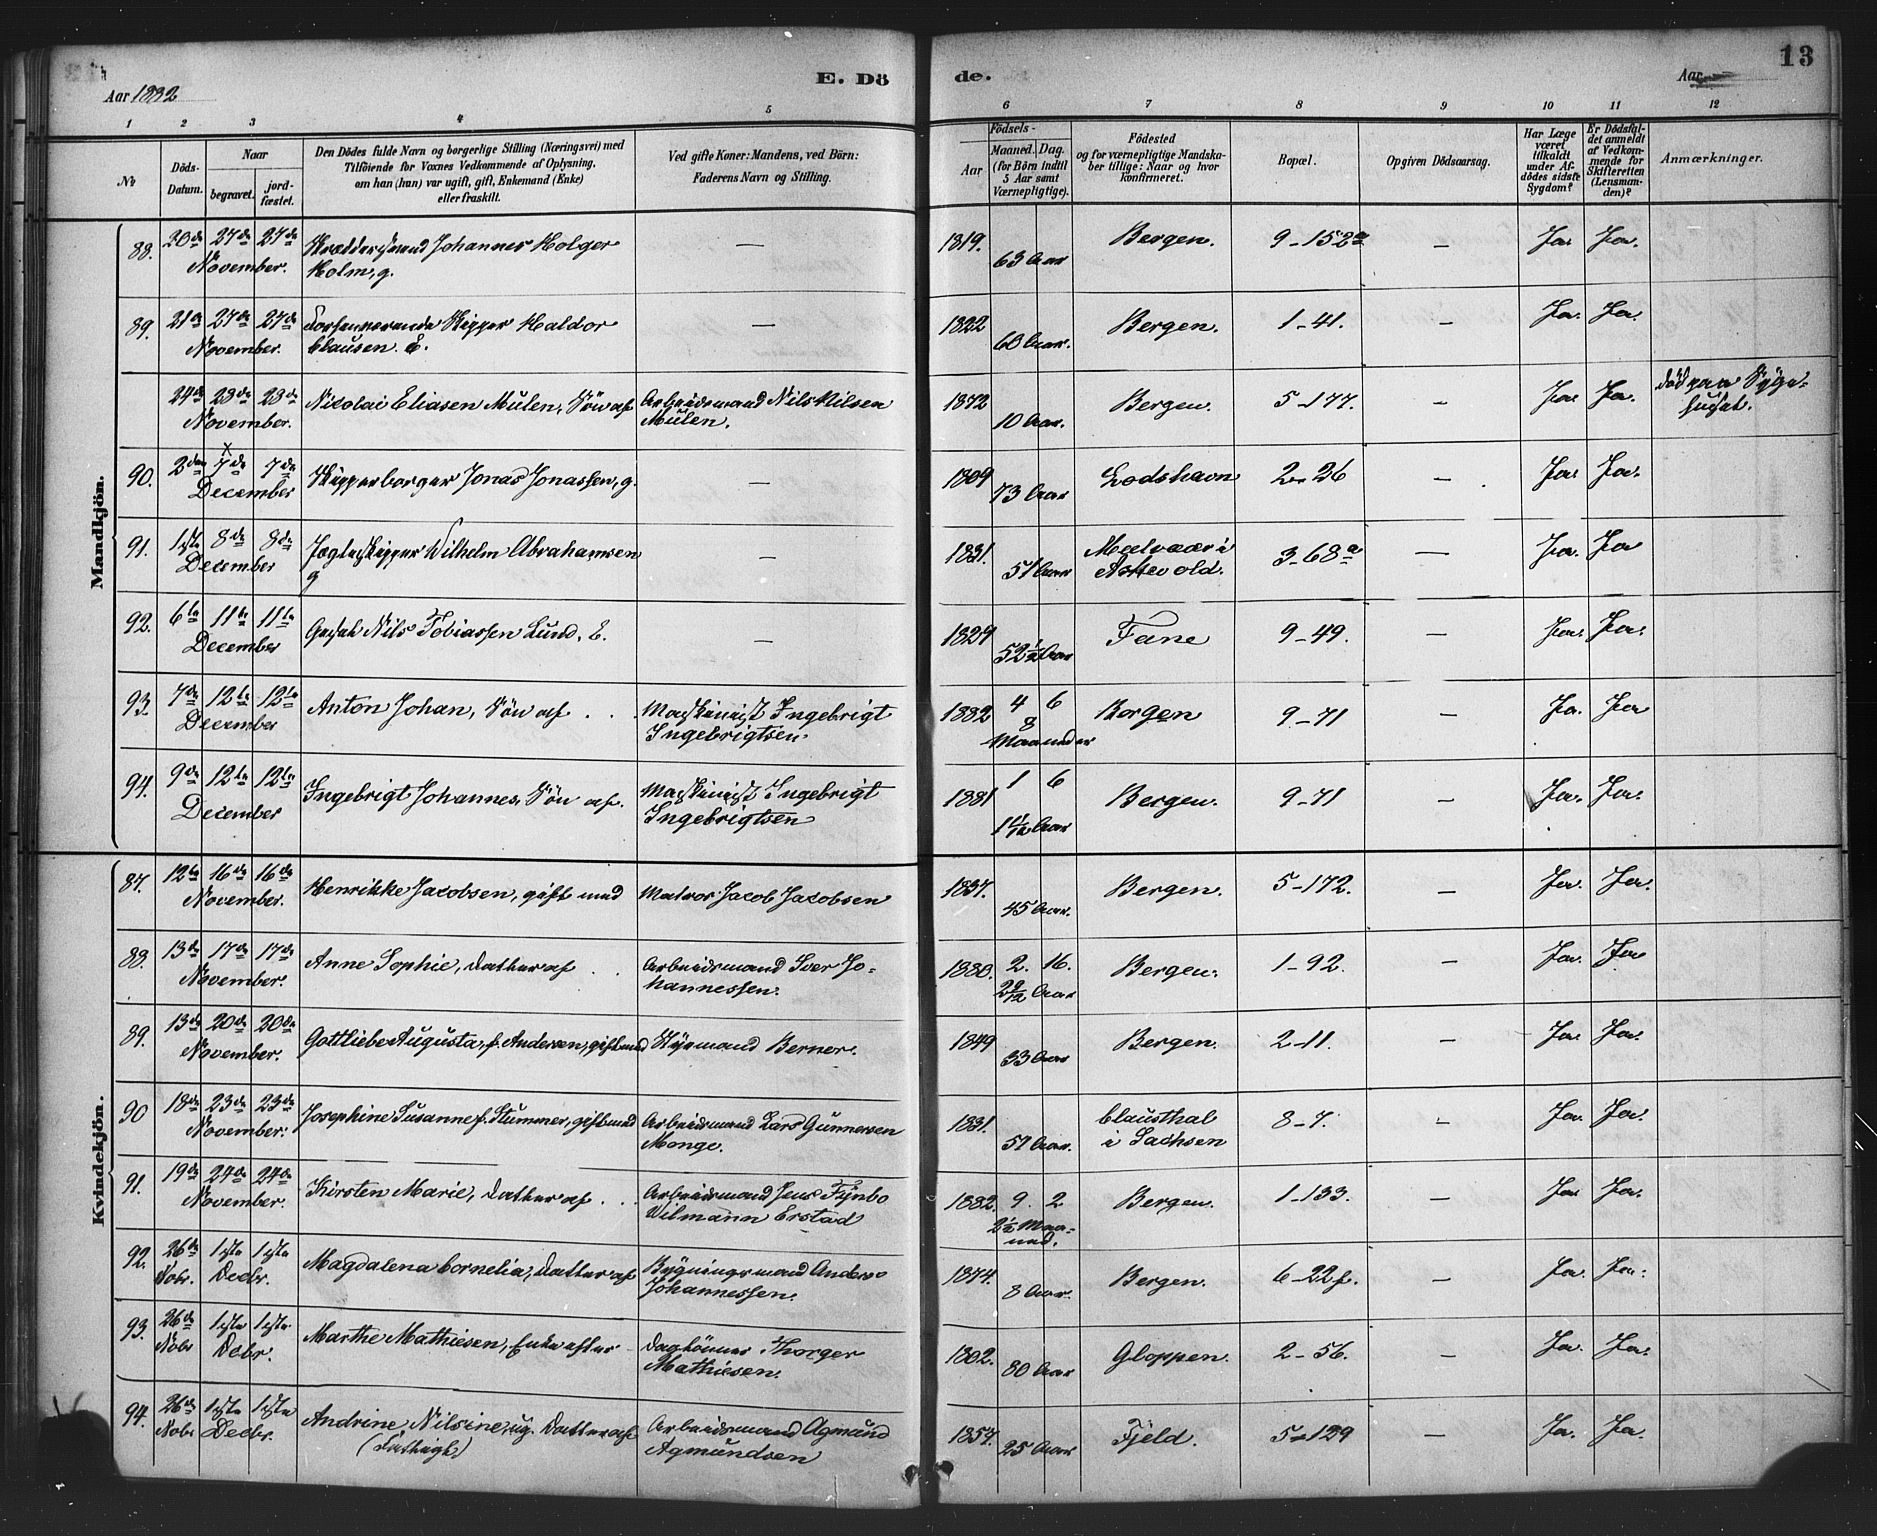 13
E. Dö de.
Aar 1882
Aar
1 2 3 4 5 6 7 8 9 10 11 12
No
Döds-Datum.
Naar
begravet.
jord-fæstet.
Den Dödes fulde Navn og borgerlige Stilling (Næringsvei) med
Tilföiende for Voxnes Vedkommende af Oplysning,
om han (hun) var ugift, gift, Enkemand (Enke)
eller fraskilt.
Ved gifte Koner: Mandens, ved Börn:
Faderens Navn og Stilling.
Födsels-
Aar
Maaned. Dag.
(for Börn indtil
5 Aar samt
Værnepligtige).
Födested
og for værnepligtige Mandska-
ber tillige: Naar og hvor
konfirmeret.
Bopæl.
Opgiven Dödsaarsag.
Har Læge
været
tilkaldt
under Af-
dödes sidste
Sygdom?
Er Dödsfal-
det anmeldt
af Vedkom-
mende for
Skifteretten
(Lensman-
den)?
Anmærkninger.
Mandkjön.
88. 20de 27de 27de Johannes Holger — 1819. Bergen. 9-152a — Ja. Ja.
November. Holm, g. 63 Aar
89. 21de 27de 27de Forhenværende Skipper Haldor — 1822 Bergen. 1-41. — Ja. Ja.
November. Clausen. E. 60 Aar.
24de 28de 28de Nicolai Eliasen Mulen, Sön af Arbeidsmand Nils Nilsen 1872 Bergen. 5-177. — Ja. Ja. Död paa Syge-
November. Mulen. 10 Aar. huset.
90. 2den 7de 7de Skipperborger Jonas Jonassen, g. — 1809 Lodshavn 2-26 — Ja. Ja.
December 73 Aar
91. 1ste 8de 8de Jægteskipper Wilhelm Abrahamsen — 1831. Melvær i 3-68a — Ja. Ja
December g 51 Aar Askevold.
92. 6te 11te 11te Nils Tobiassen Lund, E. — 1829 Fane 9-49. — Ja. Ja.
December 52½ Aar
93. 7de 12te 12te Anton Johan, Sön af . . Maskinist Ingebrigt 1882 4 6 Bergen 9-71 — Ja. Ja
December Ingebrigtsen. 8 Maaneder
94. 9de 12te 12te Ingebrigt Johannes, Sön af. Maskinist Ingebrigt 1881 1 6 Bergen. 9-71 — Ja. Ja.
December Ingebrigtsen 1 11/12 Aar
Kvindekjön.
87. 12te 16de 16de Henrikke Jacobsen, gift med Matros Jacob Jacobsen 1837. Bergen. 5-172. — Ja. Ja.
November. 45 Aar.
88. 13de 17de 17de Anne Sophie, Datter af . . Arbeidsmand Iver Jo- 1880. 2. 16. Bergen. 1-92. — Ja. Ja
November. hannessen. 2 9/12 Aar
89. 13de 20de 20de Gottliebe Augusta, f. Andersen, gift med Styrmand Berner. 1849 Bergen. 2-11. — Ja. Ja.
November. 33 Aar
90 18de 23de 23de Josephine Susanne f. Stummer, gift med Arbeidsmand Lars Gunnersen 1831. Clausthal 8-7. — Ja. Ja.
November. Monge. 51 Aar. i Sachsen
91. 19de 24de 24de Kirsten Marie, Datter af . . Arbeidsmand Jens Fynbo 1882. 9. 2 Bergen. 1-133. — Ja. Ja.
November. Wilmann Erstad 2½ Maa-
ned.
92. 26de 1ste 1ste Magdalena Cornelia, Datter af Bygningsmand Anders 1874. Bergen. 6-22f. — Ja. Ja.
Nobr. Decbr. Johannessen. 8 Aar.
93. 26de 1ste 1ste Marthe Mathiesen, Enke efter Daglönner Thorger 1802. Gloppen. 2-56. — Ja. Ja.
Nobr Debr. Mathiesen. 80 Aar
94. 26de 1ste 1ste Andrine Nilsine, ug. Datter af Arbeidsmand Agmund 1857. Fjeld. 5-129 — Ja. Ja.
Nobr Decbr. (Fattigk) Agmundsen 25 Aar